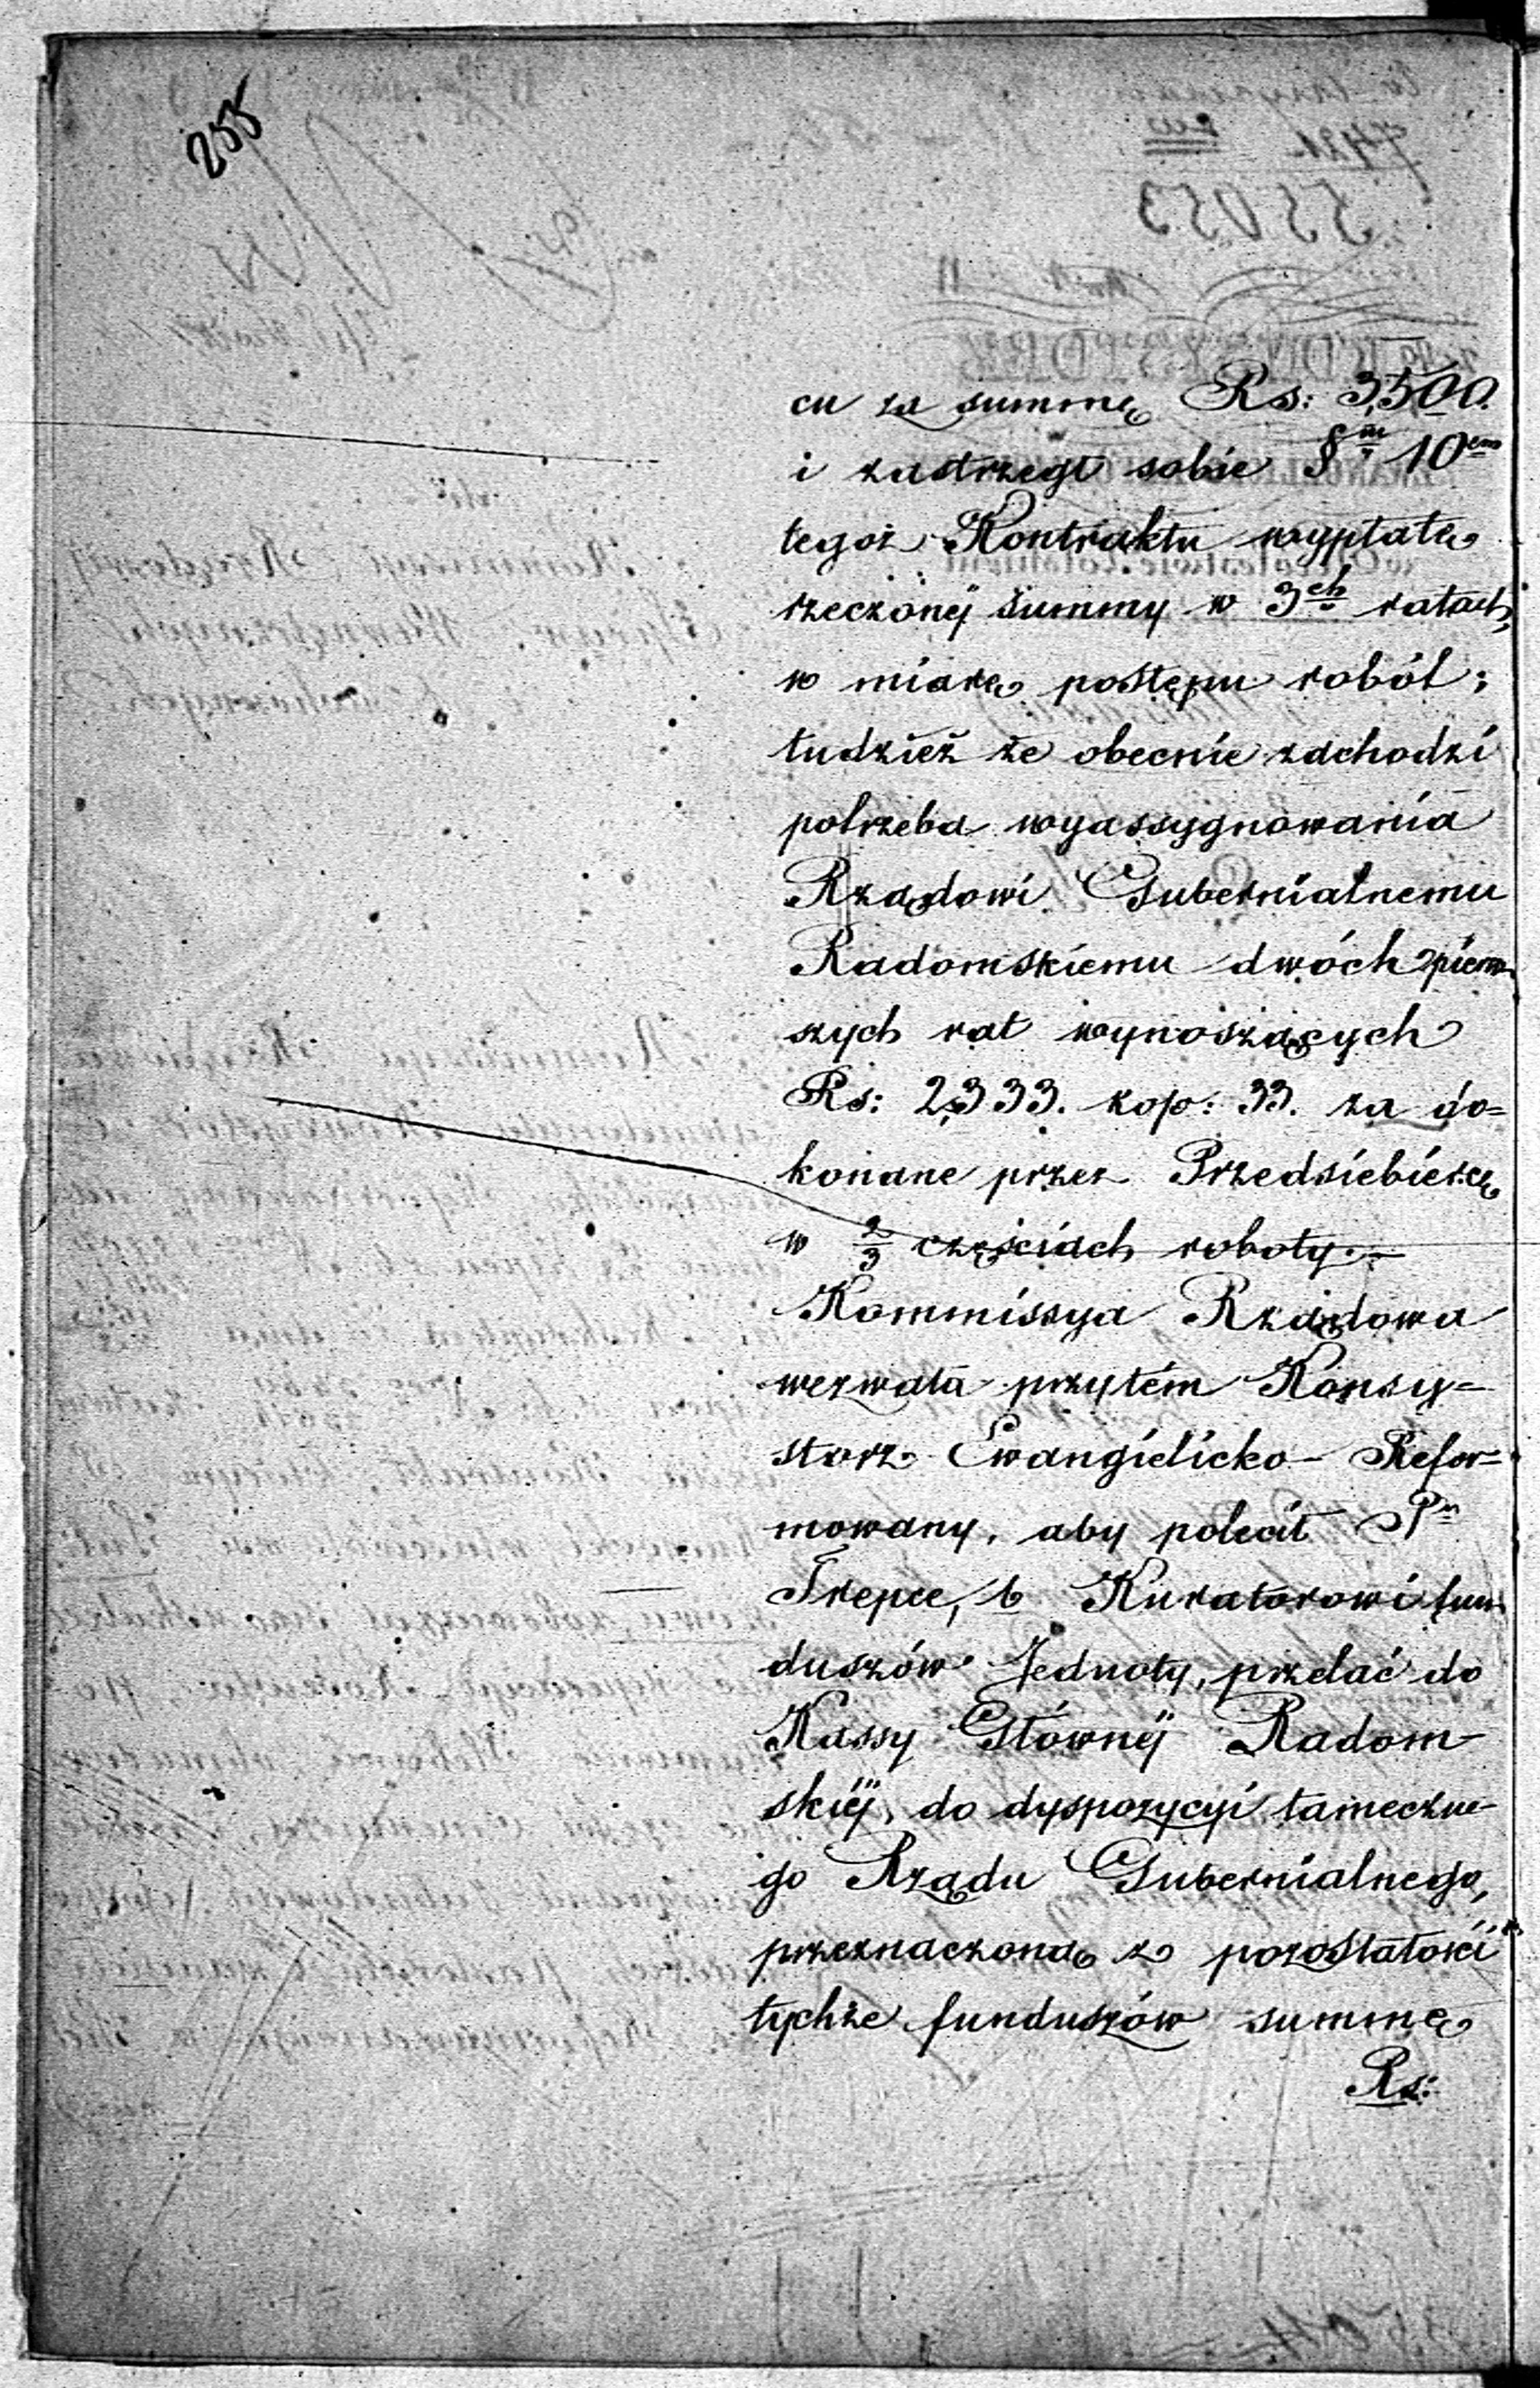 255
cu za summę Rs: 3,500.
i zastrzegł sobie §m 10em
tegoż Kontraktu wypłatę
rzeczonéj summy w 3ch ratach,
w miarę postępu robót;
tudzież że obecnie zachodzi
potrzeba wyassygnowania
Rządowi Gubernialnemu
Radomskiemu dwóch pierw-
szych rat wynoszących
Rs: 2,333. kop: 33. za do=
konane przez Przedsiebiercę
w 2/3 częściach roboty.—
Kommissya Rządowa
wezwała przytém Konsy=
storz Ewangielicko-Refor=
mowany, aby polecił Pu
Trepce, b Kuratorowi fun
duszów Jednoty, przelać do
Kassy Głównéj Radom-
skiéj, do dyspozycyi tameczne-
go Rządu Gubernialnego,
przeznaczoną z pozostałości
tychże funduszów summę
Rs: